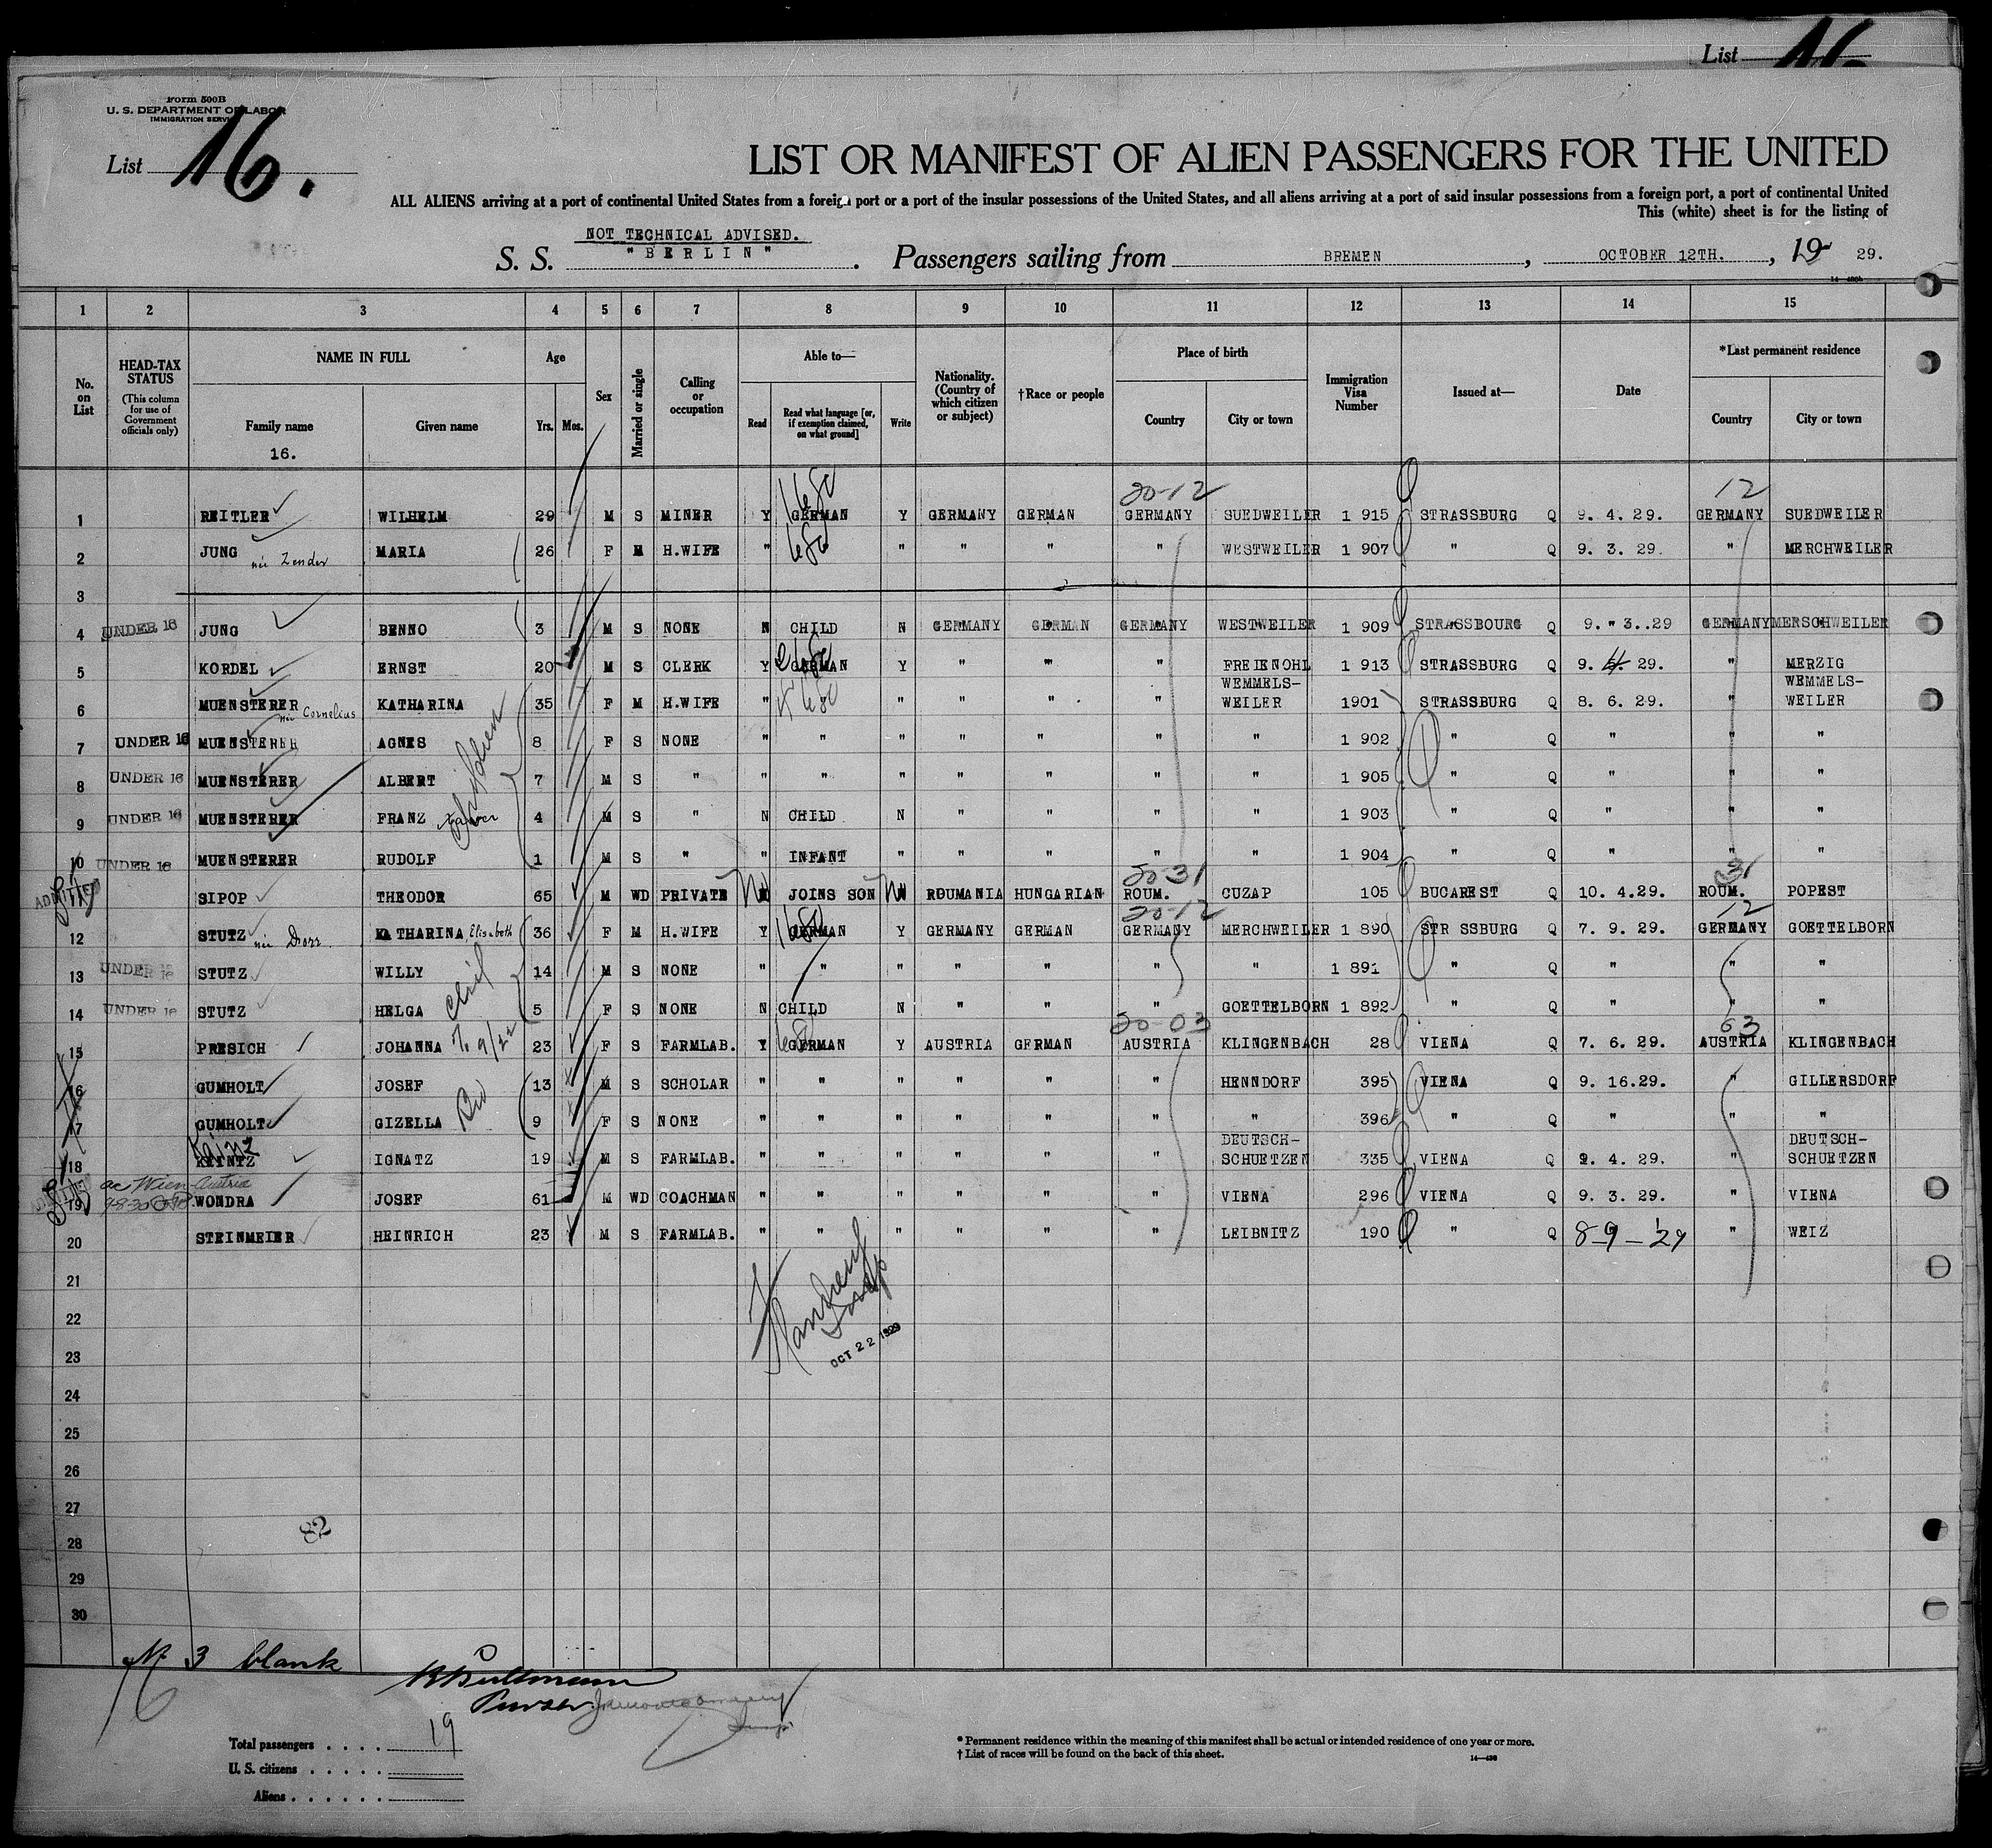 List 16.
Form 500B
U. S. DEPARTMENT OF LABOR
IMMIGRATION SERVICE
List 16.
LIST OR MANIFEST OF ALIEN PASSENGERS FOR THE UNITED
ALL ALIENS arriving at a port of continental United States from a foreign port or a port of the insular possessions of the United States, and all aliens arriving at a port of said insular possessions from a foreign port, a port of continental United
This (white) sheet is for the listing of
NOT TECHNICAL ADVISED.
S. S. "BERLIN". Passengers sailing from BREMEN, OCTOBER 12TH., 19 29.
1 2 3 4 5 6 7 8 9 10 11 12 13 14 15
No. on List
HEAD-TAX STATUS
(This column for use of Government officials only)
NAME IN FULL
Family name
16.
Given name
Age
Yrs. Mos.
Sex
Married or single
Calling or occupation
Able to—
Read
Read what language [or, if exemption claimed, on what ground]
Write
Nationality. (Country of which citizen or subject)
†Race or people
Place of birth
Country
City or town
Immigration Visa Number
Issued at—
Date
*Last permanent residence
Country
City or town
20-12 12
1 REITLER WILHELM 29 M S MINER Y GERMAN Y GERMANY GERMAN GERMANY SUEDWEILER 1 915 STRASSBURG Q 9. 4. 29. GERMANY SUEDWEILER
2 JUNG née Zender MARIA 26 F M H.WIFE " " " " " WESTWEILER 1 907 " Q 9. 3. 29. " MERCHWEILER
3
4 UNDER 16 JUNG BENNO 3 M S NONE N CHILD N GERMANY GERMAN GERMANY WESTWEILER 1 909 STRASSBOURG Q 9. " 3..29 GERMANY MERSCHWEILER
5 KORDEL ERNST 20 M S CLERK Y GERMAN Y " " " FREIENOHL 1 913 STRASSBURG Q 9. 4. 29. " MERZIG
6 MUENSTERER née Cornelius KATHARINA 35 F M H.WIFE " " " " " WEMMELS-WEILER 1901 STRASSBURG Q 8. 6. 29. " WEMMELS-WEILER
7 UNDER 16 MUENSTERER AGNES 8 F S NONE " " " " " " " 1 902 " Q " " "
8 UNDER 16 MUENSTERER ALBERT 7 M S " " " " " " " " 1 905 " Q " " "
children
9 UNDER 16 MUENSTERER FRANZ Xaver 4 M S " N CHILD N " " " " 1 903 " Q " " "
10 UNDER 16 MUENSTERER RUDOLF 1 M S " " INFANT " " " " " 1 904 " Q " " "
20-31 31
ADMITTED SIPOP THEODOR 65 M WD PRIVATE No JOINS SON No ROUMANIA HUNGARIAN ROUM. CUZAP 105 BUCAREST Q 10. 4.29. ROUM. POPEST
20-12 12
12 STUTZ née KATHARINA Elisabeth 36 F M H.WIFE Y GERMAN Y GERMANY GERMAN GERMANY MERCHWEILER 1 890 STR SSBURG Q 7. 9. 29. GERMANY GOETTELBORN
13 UNDER 16 STUTZ WILLY 14 M S NONE " " " " " " " 1 891 " Q " " "
14 UNDER 16 STUTZ HELGA 5 F S NONE N CHILD N " " " GOETTELBORN 1 892 " Q " " "
20-03 63
15 PRESICH JOHANNA 23 F S FARMLAB. Y GERMAN Y AUSTRIA GERMAN AUSTRIA KLINGENBACH 28 VIENA Q 7. 6. 29. AUSTRIA KLINGENBACH
16 GUMHOLT JOSEF 13 M S SCHOLAR " " " " " " HENNDORF 395 VIENA Q 9. 16.29. " GILLERSDORF
17 GUMHOLT GIZELLA 9 F S NONE " " " " " " " 396 " Q " " "
18 Kainz IGNATZ 19 M S FARMLAB. " " " " " " DEUTSCH-SCHUETZEN 335 VIENA Q 9. 4. 29. " DEUTSCH-SCHUETZEN
19 WONDRA JOSEF 61 M WD COACHMAN " " " " " " VIENA 296 VIENA Q 9. 3. 29. " VIENA
20 STEINMEIER HEINRICH 23 M S FARMLAB. " " " " " " LEIBNITZ 190 " Q 8-9-29 " WEIZ
21
22
23
OCT 22 1929
24
25
26
27
82
28
29
30
No 3 blank
Purser
Total passengers . . . . 19
U. S. citizens . . . . .
Aliens . . . . . .
* Permanent residence within the meaning of this manifest shall be actual or intended residence of one year or more.
† List of races will be found on the back of this sheet.
14—430